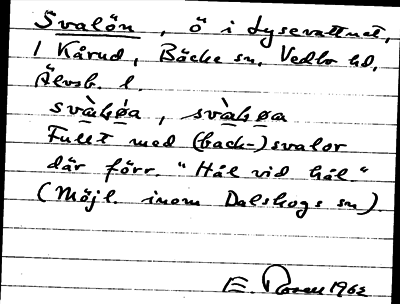 Svalön, ö i Lysevattnet,
1 Kårud, Bäcke sn, Vedbo hd,
Älvsb. l.
svàhøa, svàhøa
Fullt med (back-)svalor
där förr. "Hål vid hål."
(Möjl. inom Dalskogs sn).
E. 1962